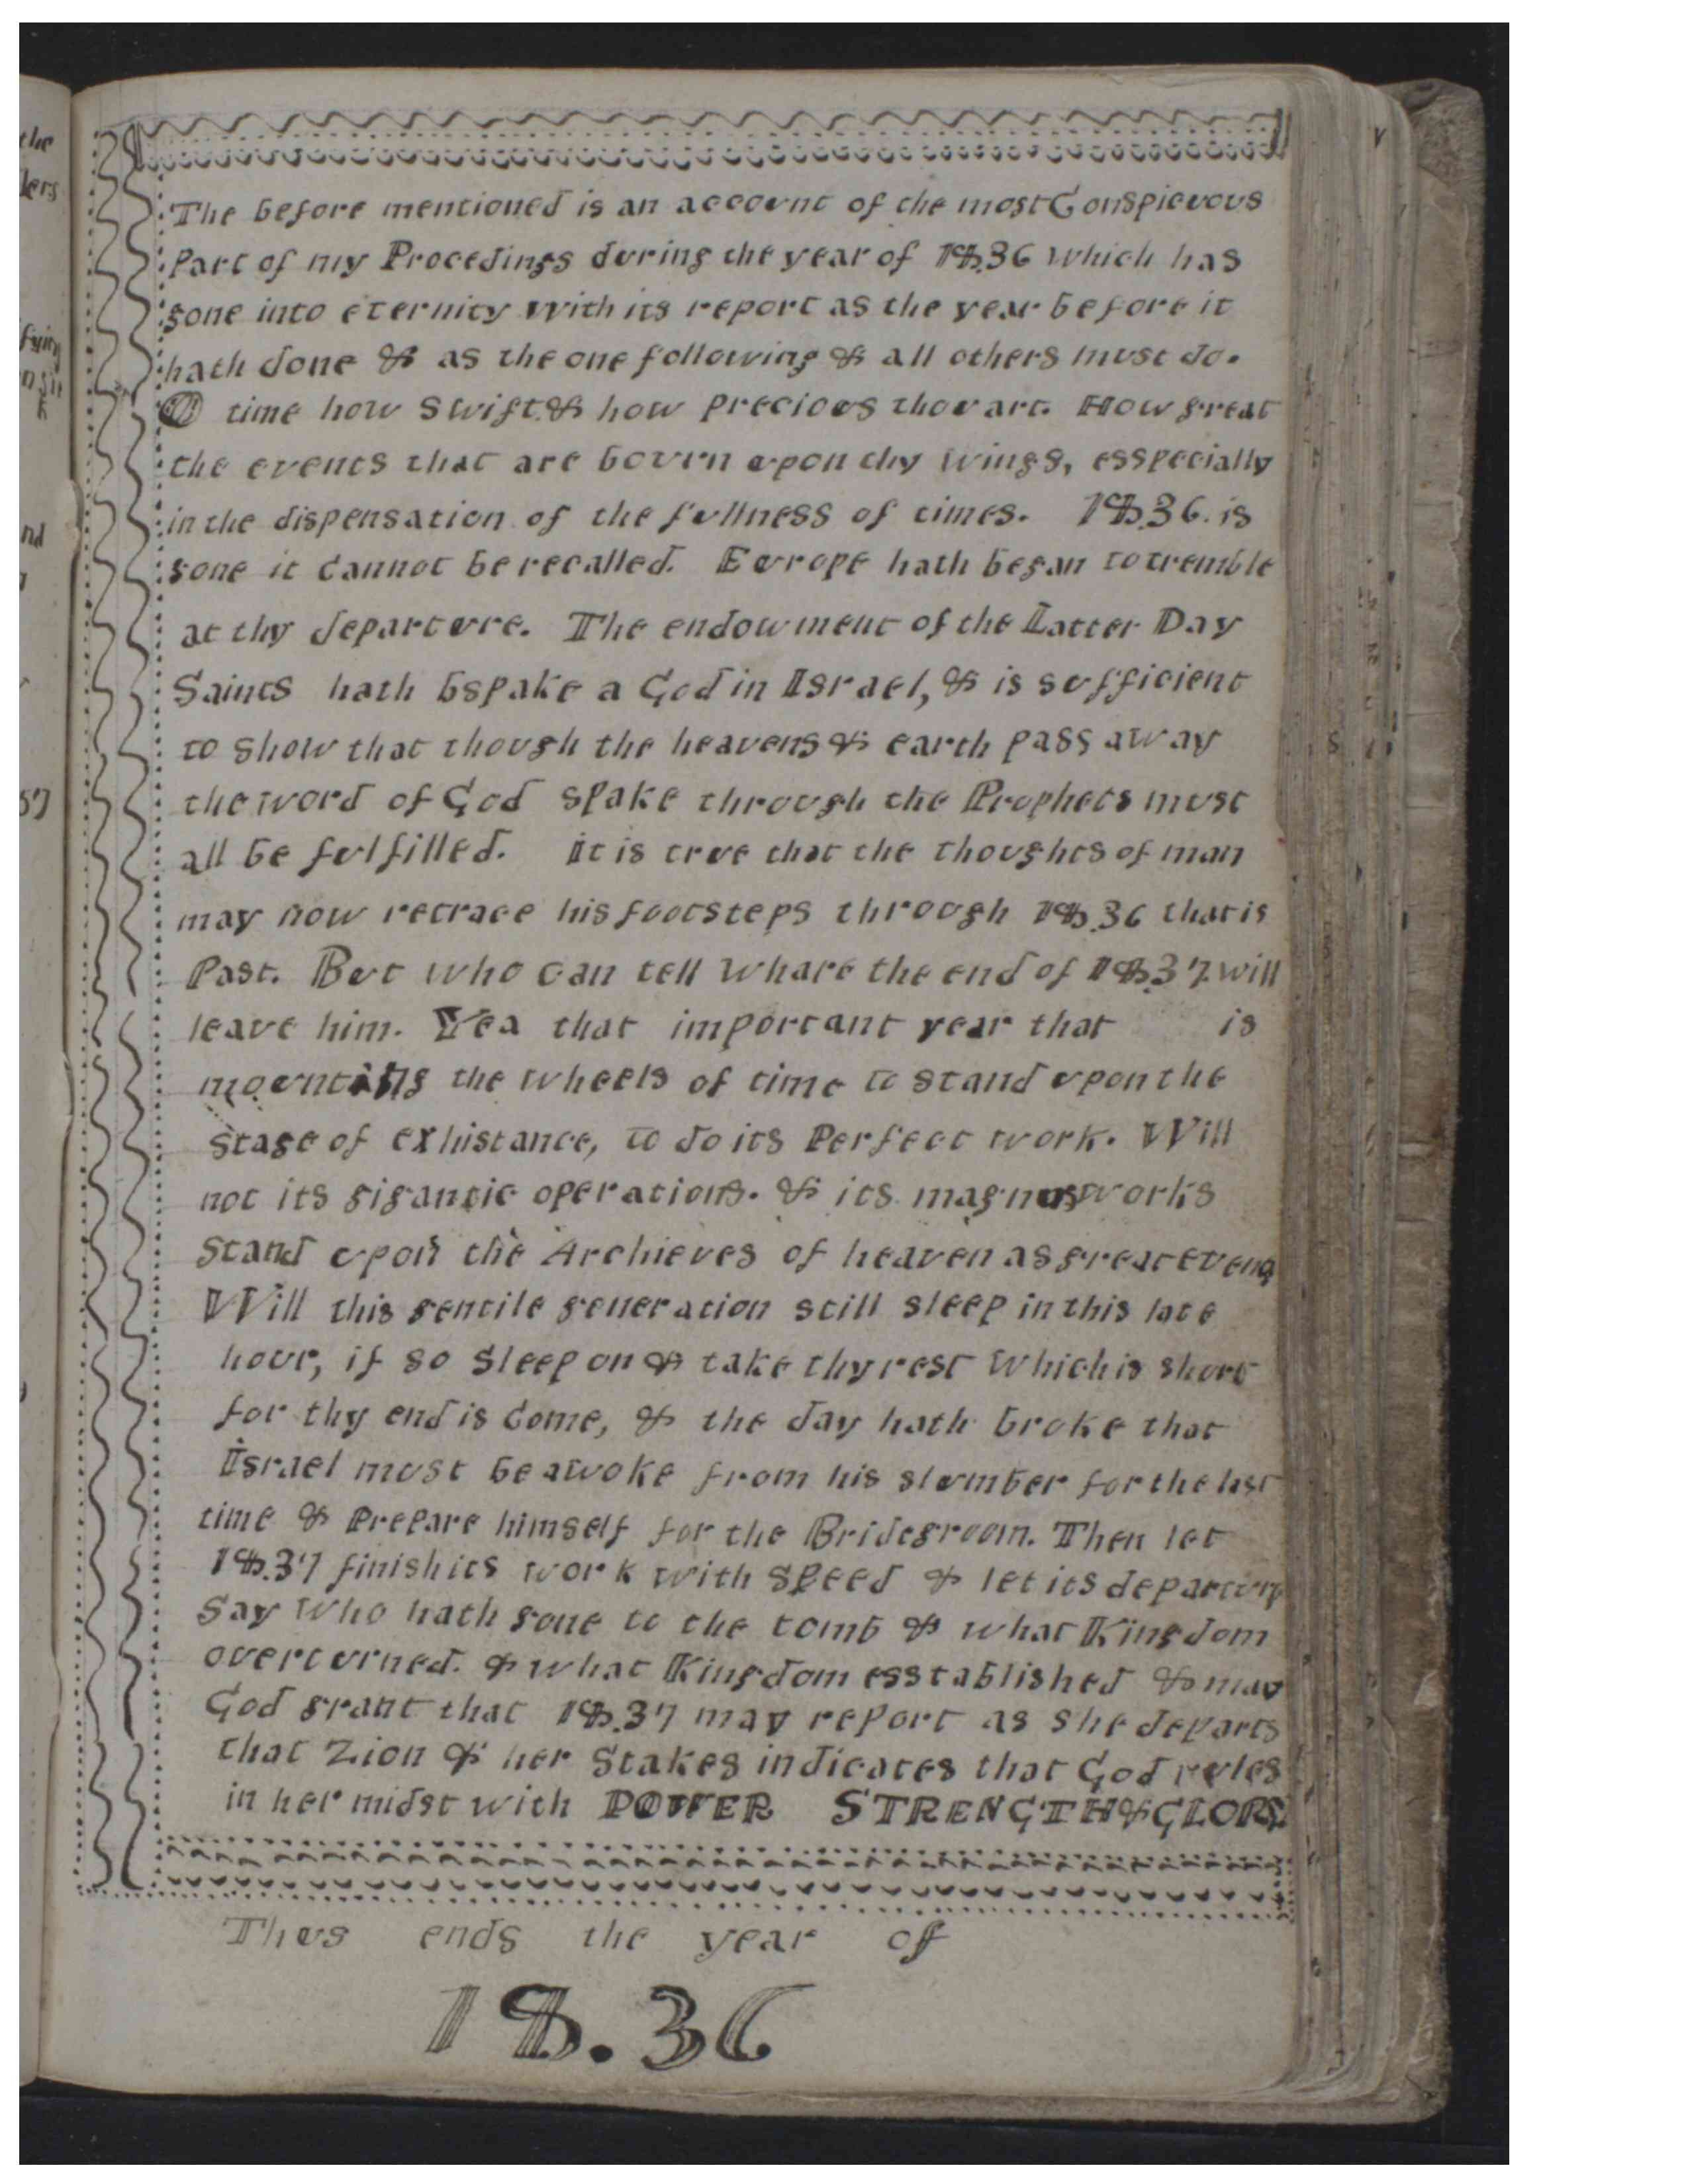 The before mentioned is an account of the most Conspicuous
Part of my Procedings during the year of 18.36 which has
gone into eternity with its report as the year before it
hath done & as the one following & all others must do.
O time how swift & how precious thou art. How great
the events that are bourn upon thy wings, esspecially
in the dispensation of the fullness of times. 18.36. is
gone it cannot be recalled. Europe hath began to tremble
at thy departure. The endowment of the Latter Day
Saints hath bspake a God in Israel, & is sufficient
to show that though the heavens & earth pass away
the word of God spake through the Prophets must
all be fulfilled. It is true that the thoughts of man
may now retrace his footsteps through 18.36 that is
Past. But who can tell whare the end of 18.37 will
leave him. Yea that important year that is
mounting the wheels of time to stand upon the
stage of exhistance, to do its Perfect work. Will
not its gigantic operations. & its magnus works
stand upon the Archieves of heaven as great events
Will this gentile generation still sleep in this late
hour, if so sleep on & take thy rest which is short
for thy end is come, & the day hath broke that
Israel must be awoke from his slumber for the last
time & Prepare himself for the Bridegroom. Then let
18.37 finish its work with speed & let its departure
say who hath gone to the tomb & what Kingdom
overturned. & what Kingdom esstablished & may
God grant that 18.37 may report as she departs
that Zion & her Stakes indicates that God rules
in her midst with POWER STRENGTH & GLORY.
Thus ends the year of
18.36
the
lers
nd